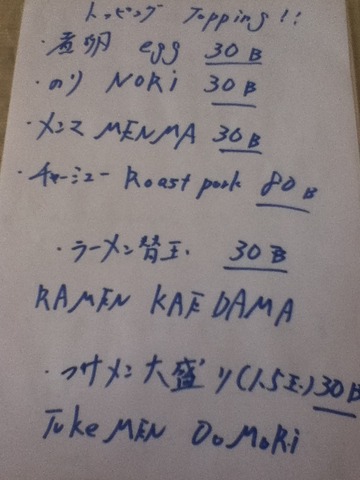 トッピング Topping!!
・煮卵 egg 30B
・のり NORi 30B
・メンマ MENMA 30B
・チャーシュー Roast pork 80B
・ラーメン替玉 30B
RAMEN KAEDAMA
・つけメン大盛り(1.5玉) 30B
TukeMEN OoMoRi